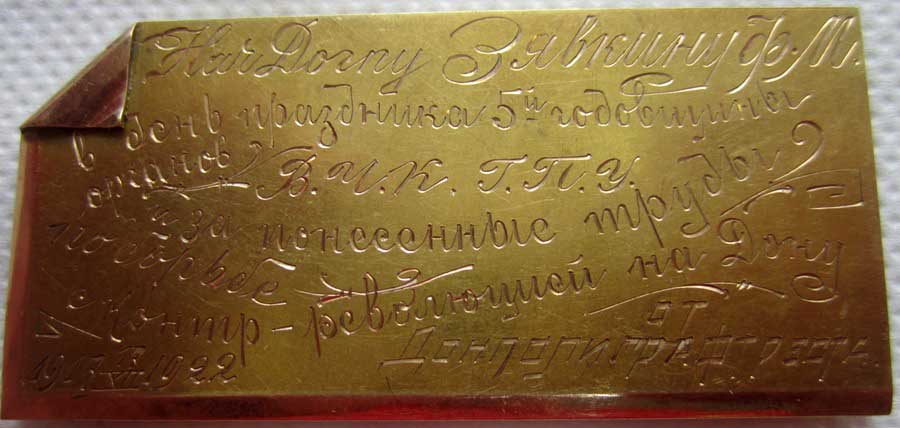 Нач Догпу Зявкину Ф.М.
в день праздника 5й годовщины
органов В.Ч.К. Г.П.У.
и за понесенные труды
по борьбе
с контр-революцией на Дону
от
Донполиграфтреста
1917 XX/XII 1922